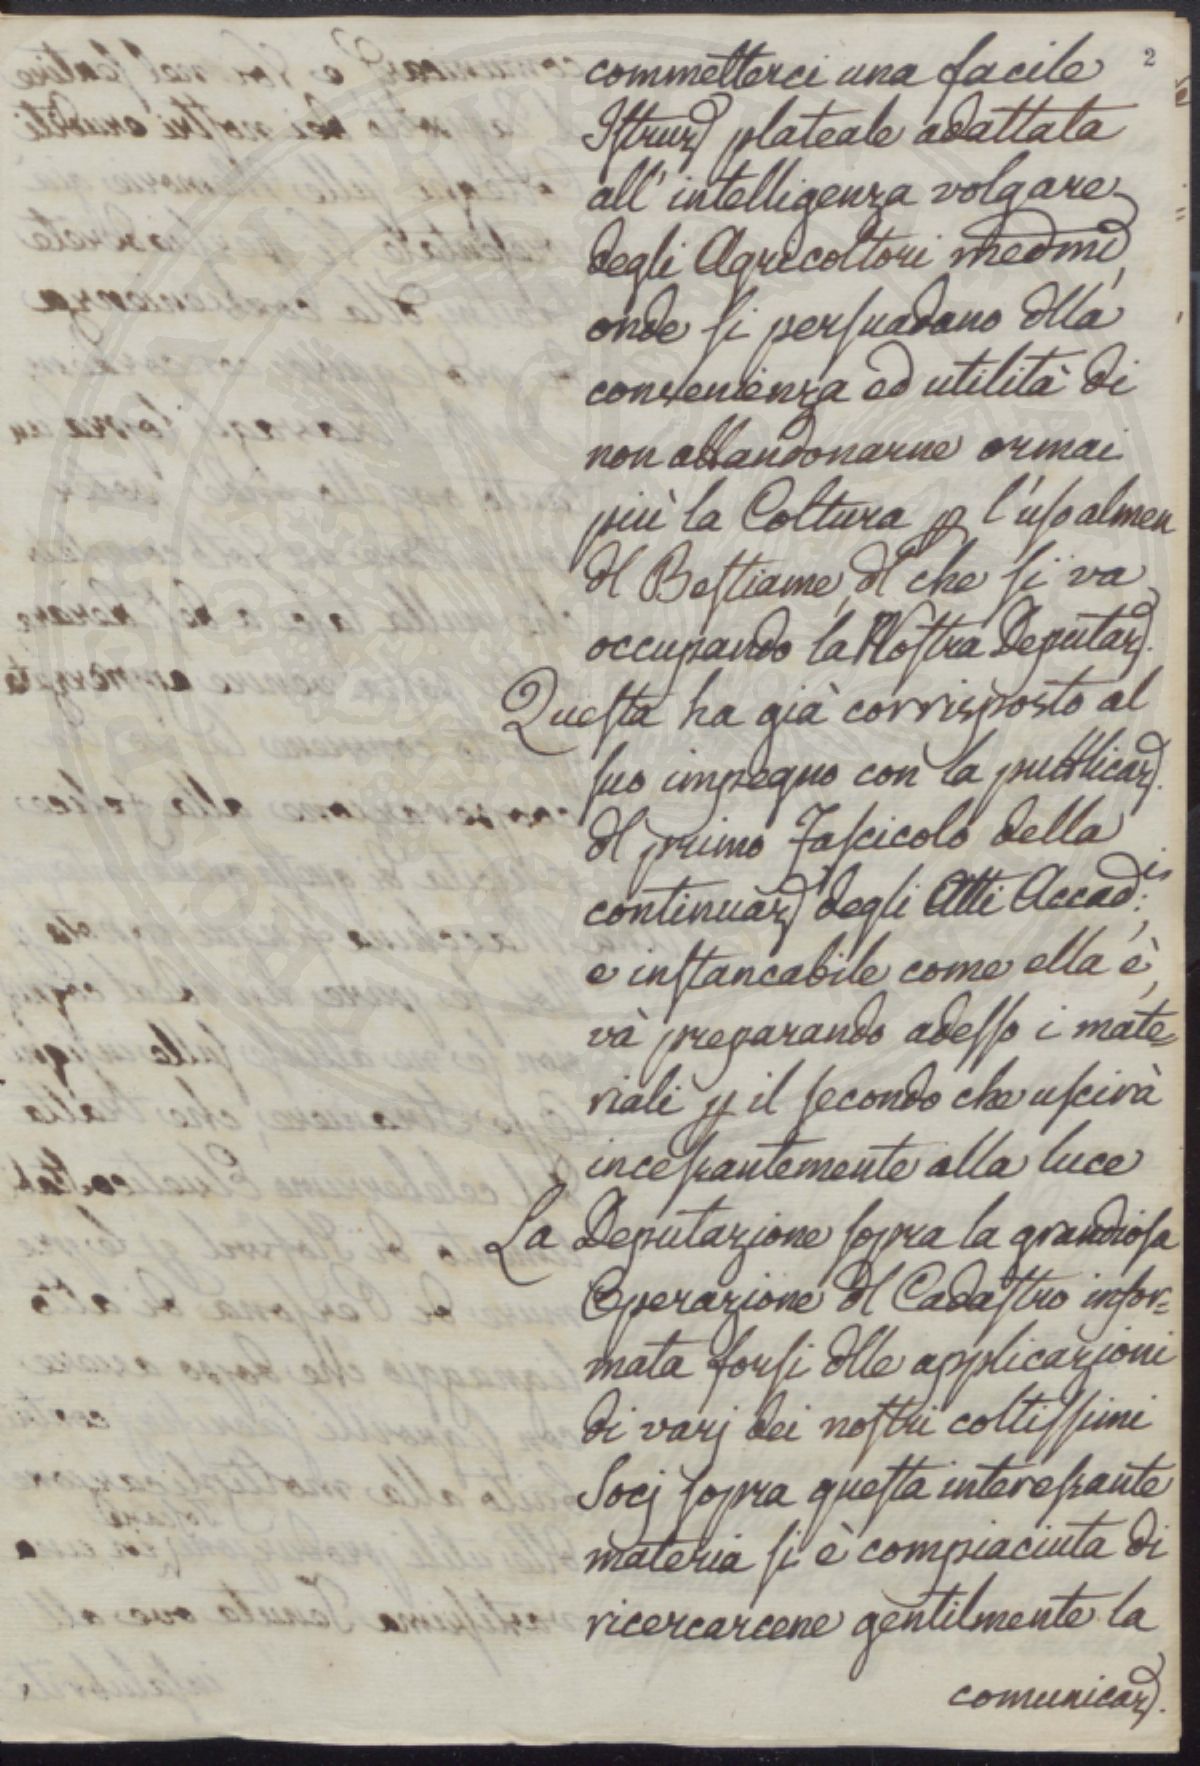 2
commetterci una facile
Istruz plateale adattata
all' intelligenza volgare
degli Agricoltori medmi,
onde si persuadano dlla
convenienza ed utilità di
non abbandonarne ormai
più la Coltura p l'uso almen
dl Bestiame, dl che si va
occupando la Nostra Deputaz.
Questa ha già corrisposto al
suo impegno con la pubblicaz.
dl primo Fascicolo della
continuaz degli Atti Accad:ci,
e instancabile come ella è,
và preparando adesso i mate=
riali p il secondo che uscirà
incessantemente alla luce
La Deputazione sopra la grandiosa
Operazione dl Cadastro infor=
mata forsi dlle applicazioni
di varj dei nostri coltissimi
Socj sopra questa interessante
materia si è compiaciuta di
ricercarcene gentilmente la
comunicaz.